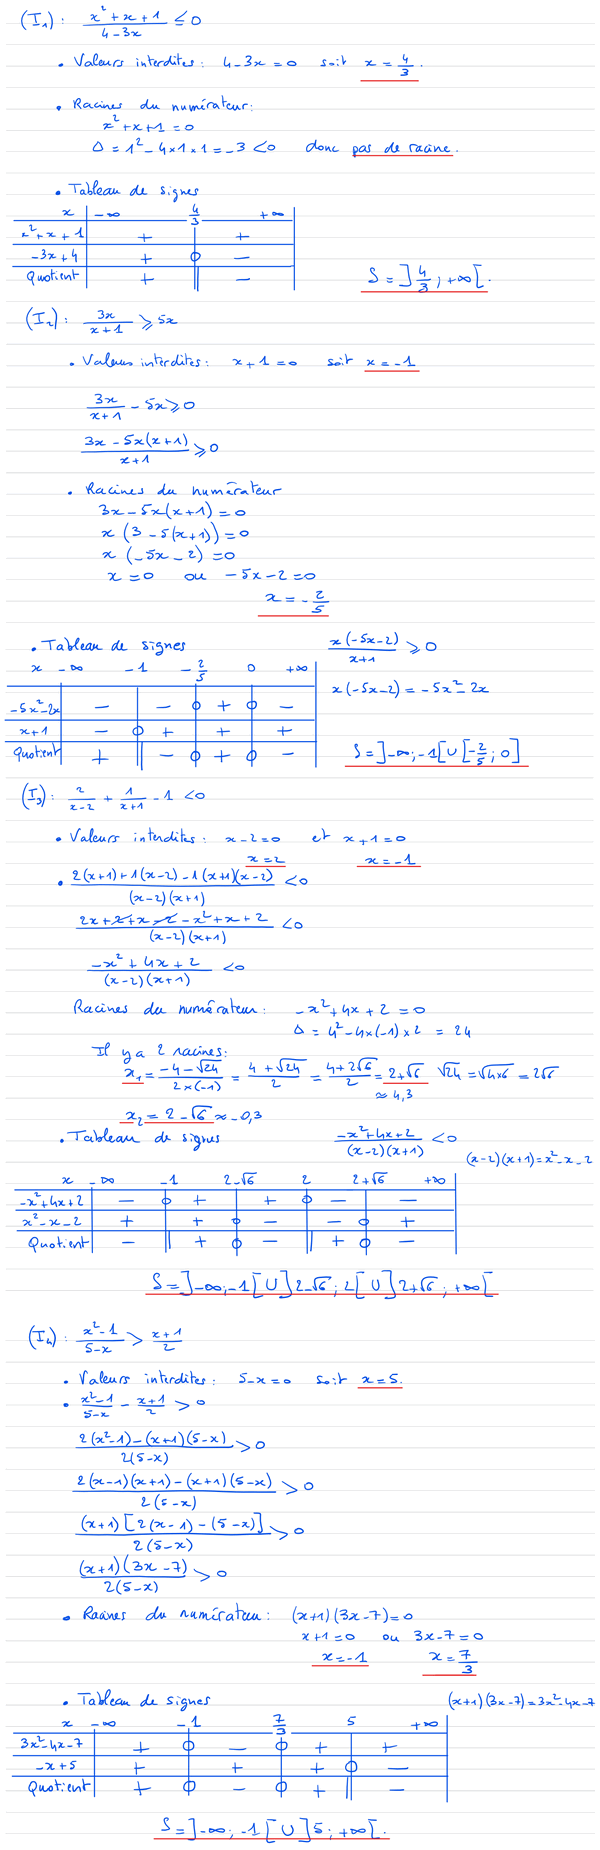 (I₁) : (x² + x + 1)/(4 - 3x) ≤ 0
• Valeurs interdites : 4 - 3x = 0 soit x = 4/3.
• Racines du numérateur :
x² + x + 1 = 0
Δ = 1² - 4 × 1 × 1 = -3 < 0 donc pas de racine.
• Tableau de signes
x | -∞ 4/3 +∞
x² + x + 1 | + | +
-3x + 4 | + 0 -
Quotient | + || -
S = ]4/3 ; +∞[.
(I₂) : 3x/(x + 1) ≥ 5x
• Valeurs interdites : x + 1 = 0 soit x = -1
3x/(x + 1) - 5x ≥ 0
(3x - 5x(x + 1))/(x + 1) ≥ 0
• Racines du numérateur
3x - 5x(x + 1) = 0
x (3 - 5(x + 1)) = 0
x (-5x - 2) = 0
x = 0 ou -5x - 2 = 0
x = -2/5
• Tableau de signes x(-5x - 2)/(x + 1) ≥ 0
x -∞ -1 -2/5 0 +∞
x(-5x - 2) = -5x² - 2x
-5x² - 2x | - | - 0 + 0 -
x + 1 | - 0 + | + | +
Quotient | + || - 0 + 0 -
S = ]-∞ ; -1[ U [-2/5 ; 0]
(I₃) : 2/(x - 2) + 1/(x + 1) - 1 < 0
• Valeurs interdites : x - 2 = 0 et x + 1 = 0
x = 2 x = -1
• (2(x + 1) + 1(x - 2) - 1(x + 1)(x - 2))/((x - 2)(x + 1)) < 0
(2x + 2 + x - 2 - x² + x + 2)/((x - 2)(x + 1)) < 0
(-x² + 4x + 2)/((x - 2)(x + 1)) < 0
Racines du numérateur : -x² + 4x + 2 = 0
Δ = 4² - 4 × (-1) × 2 = 24
Il y a 2 racines :
x₁ = (-4 - √24)/(2 × (-1)) = (4 + √24)/2 = (4 + 2√6)/2 = 2 + √6 √24 = √(4×6) = 2√6
≈ 4,3
x₂ = 2 - √6 ≈ -0,3
• Tableau de signes (-x² + 4x + 2)/((x - 2)(x + 1)) < 0
(x - 2)(x + 1) = x² - x - 2
x -∞ -1 2-√6 2 2+√6 +∞
-x² + 4x + 2 | - 0 + | + 0 - | -
x² - x - 2 | + | + 0 - | - 0 +
Quotient | - || + 0 - || + 0 -
S = ]-∞ ; -1[ U ]2-√6 ; 2[ U ]2+√6 ; +∞[
(I₄) : (x² - 1)/(5 - x) > (x + 1)/2
• Valeurs interdites : 5 - x = 0 soit x = 5.
• (x² - 1)/(5 - x) - (x + 1)/2 > 0
(2(x² - 1) - (x + 1)(5 - x))/(2(5 - x)) > 0
(2(x - 1)(x + 1) - (x + 1)(5 - x))/(2(5 - x)) > 0
((x + 1)[2(x - 1) - (5 - x)])/(2(5 - x)) > 0
((x + 1)(3x - 7))/(2(5 - x)) > 0
• Racines du numérateur : (x + 1)(3x - 7) = 0
x + 1 = 0 ou 3x - 7 = 0
x = -1 x = 7/3
• Tableau de signes (x + 1)(3x - 7) = 3x² - 4x - 7
x -∞ -1 7/3 5 +∞
3x² - 4x - 7 | + 0 - 0 + | +
-x + 5 | + | + | + 0 -
Quotient | + 0 - 0 + || -
S = ]-∞ ; -1[ U ]5 ; +∞[.